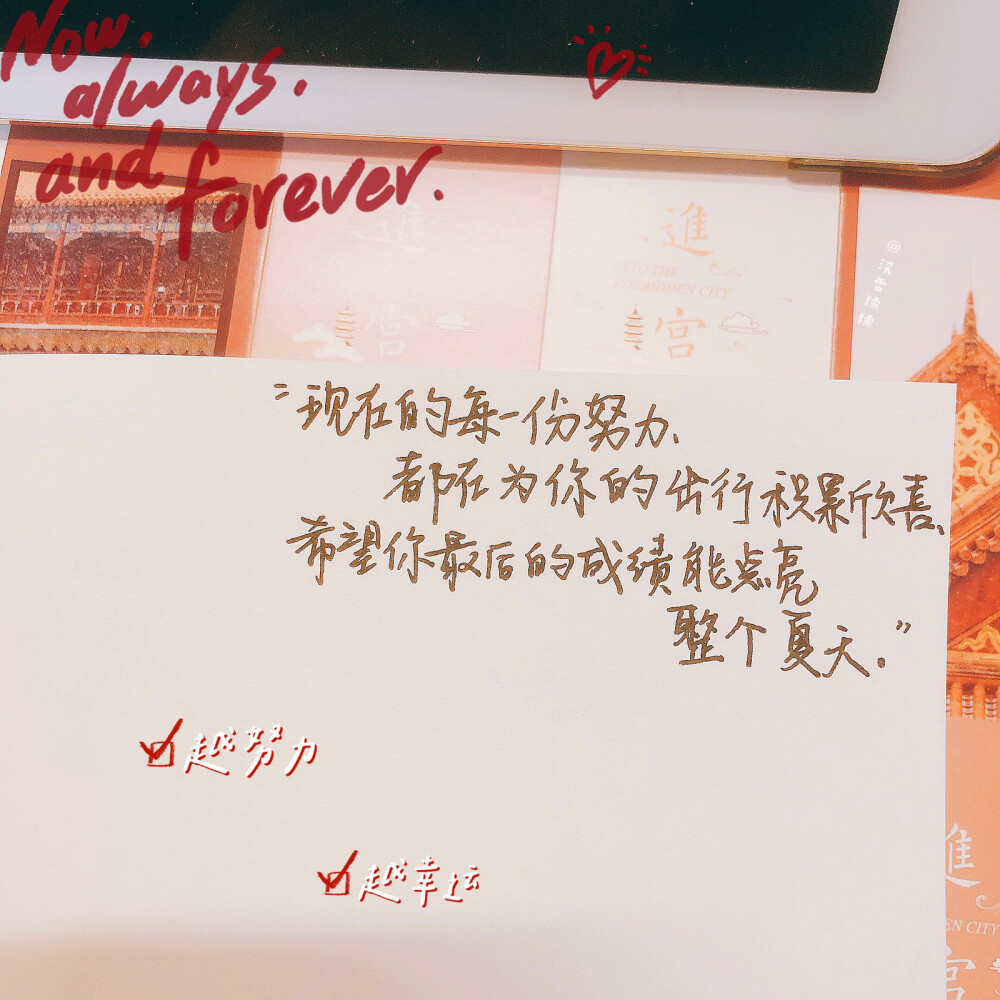 Now.
always.
and forever.
進
INTO THE
FORBIDDEN CITY
宫
進
宫
@淡香馍馍
“现在的每一份努力、
都在为你的出行积累新欣喜、
希望你最后的成绩能点亮
整个夏天.”
越努力
越幸坛
進
EN CITY
宫